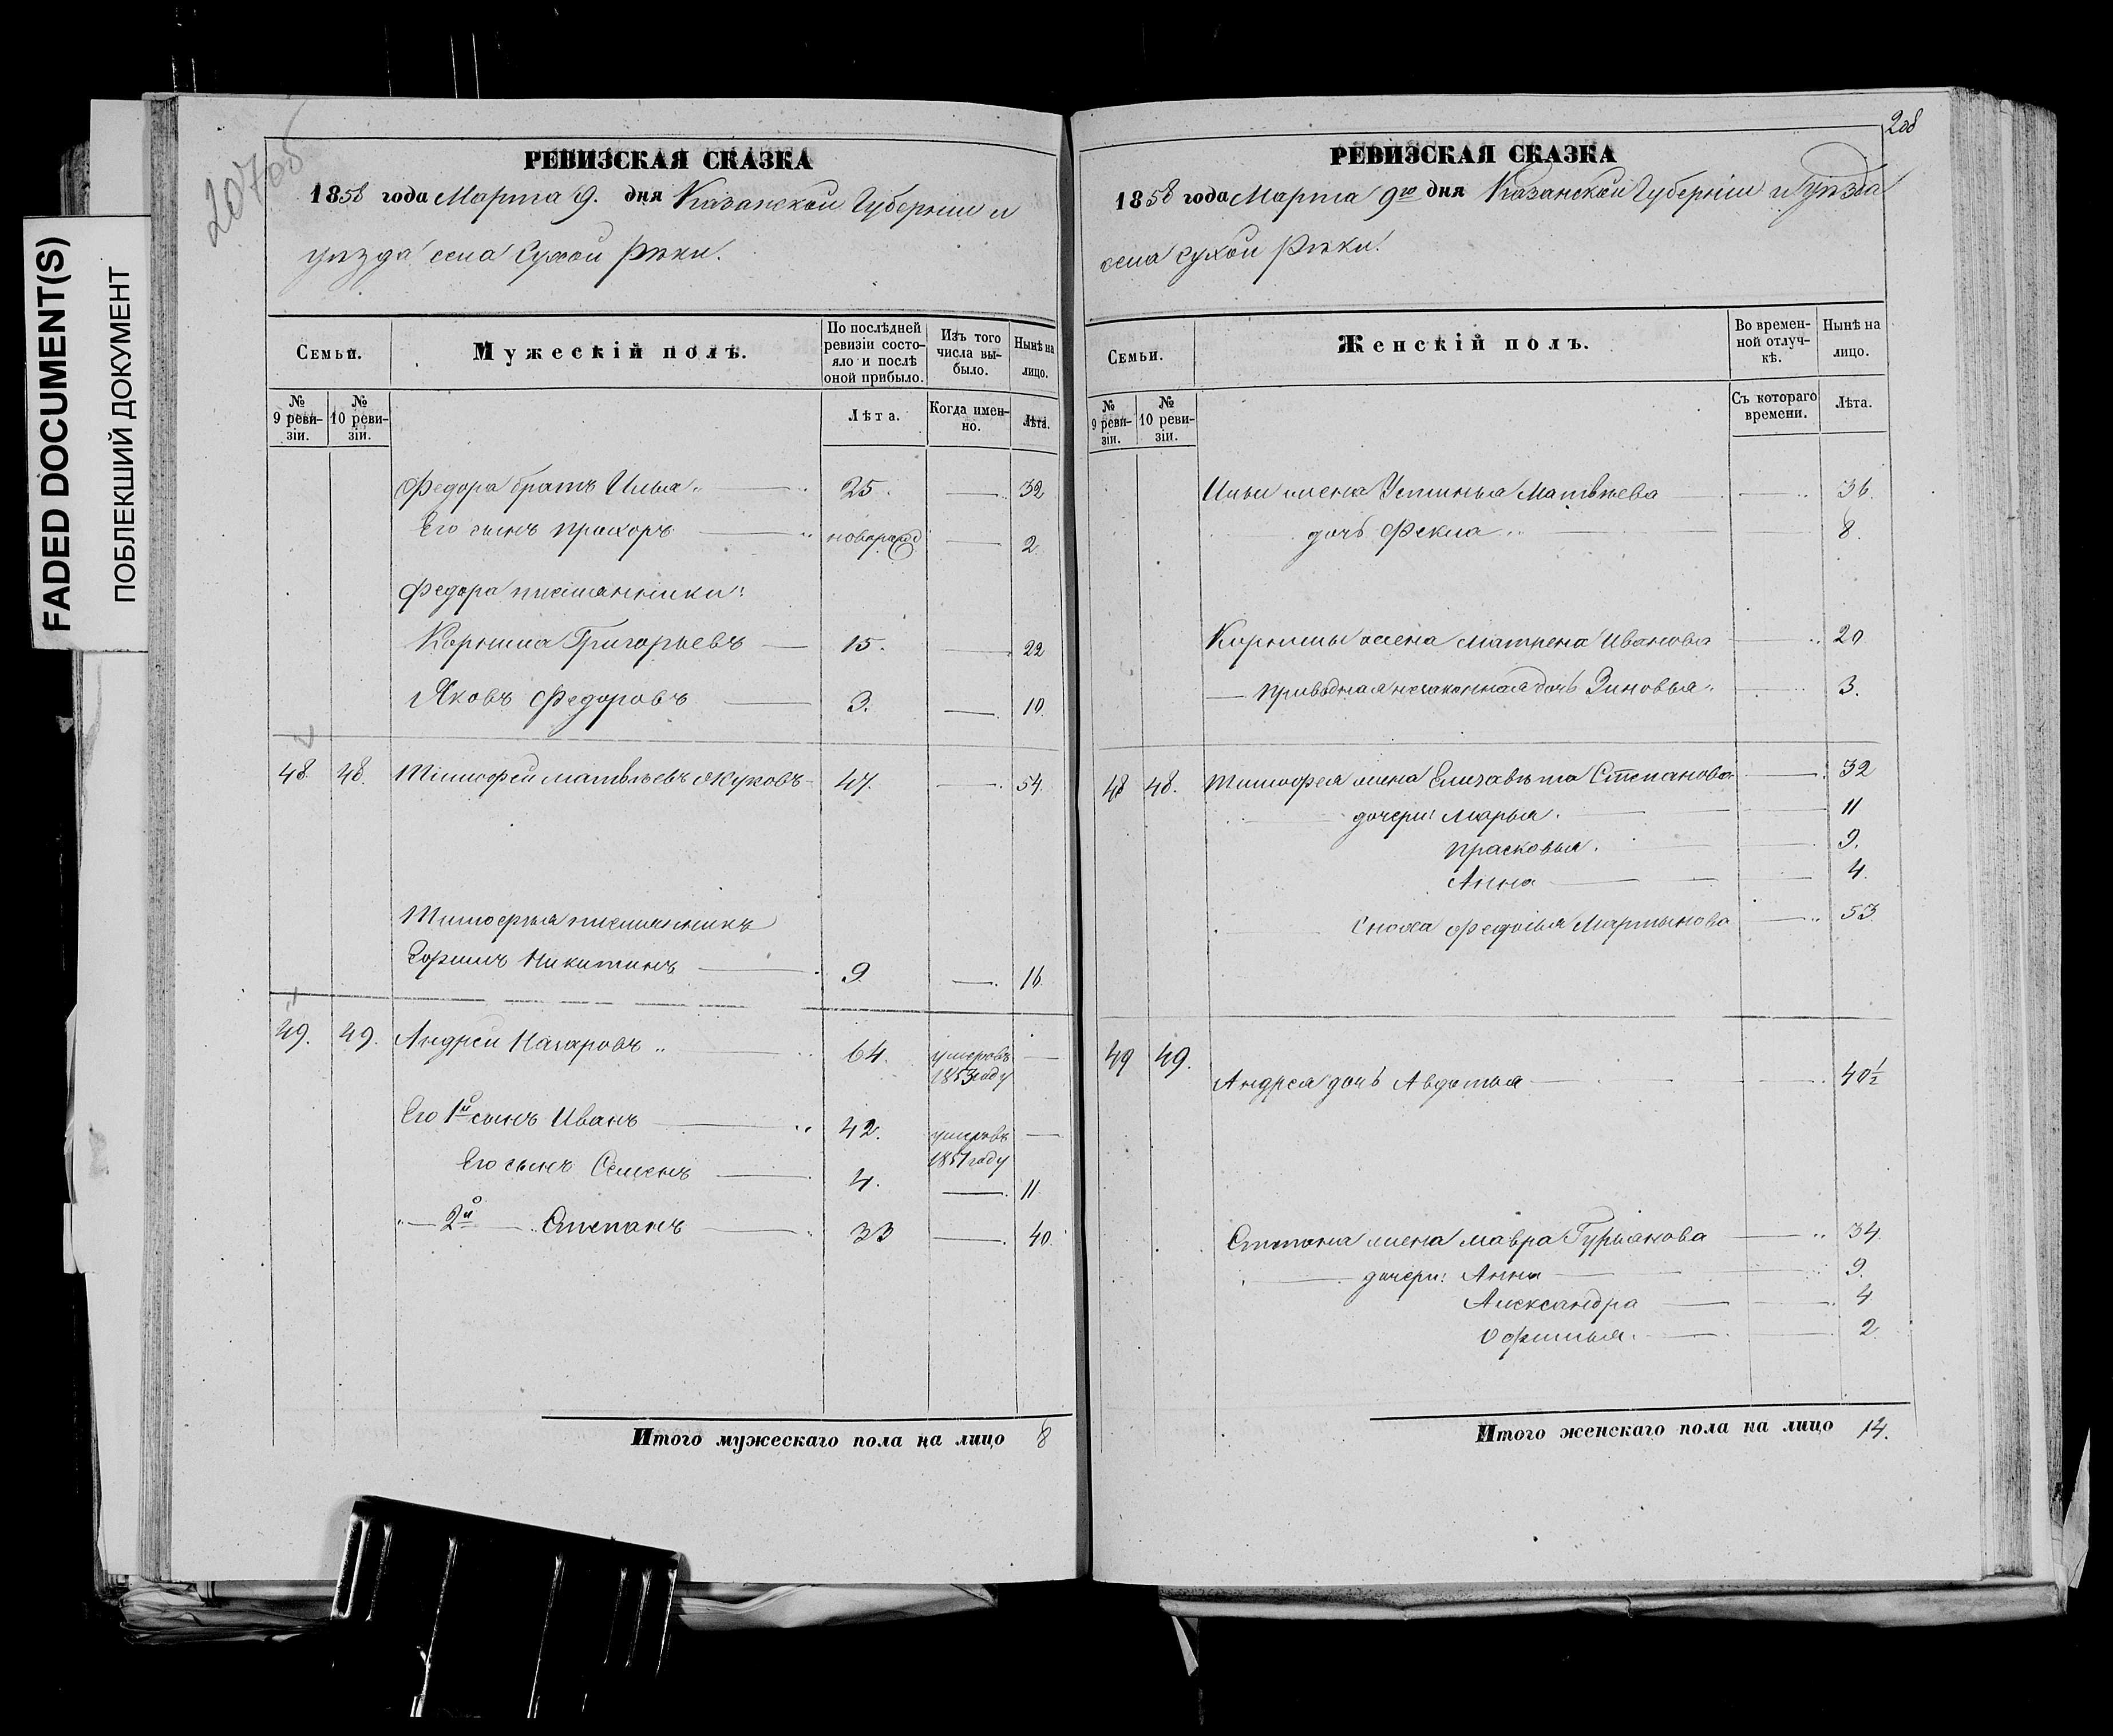 FADED DOCUMENT(S)
ПОБЛЕКШИЙ ДОКУМЕНТ
РЕВИЗСКАЯ СКАЗКА
1858 года Марта 9. дня Казанской Губернiи и
уѣзда села Сухой Рѣки.
Семьи.
Мужескiй полъ.
По послѣдней ревизiи состояло и послѣ оной прибыло.
Изъ того числа выбыло.
Нынѣ на лицо.
№ 9 ревизiи.
№ 10 ревизiи.
Лѣта.
Когда именно.
Лѣта.
Федора братъ Илья 25. 32
Его сынъ Прохоръ новорожд 2.
Федора племянники:
Корнила Григорьевъ 15. 22
Яковъ Федоровъ 3. 10.
48. 48. Тимофей Матвѣевъ Жуковъ 47. 54.
Тимофея племянникъ
Никитинъ 9. 16
49. 49. Андрей Назаровъ 64. умеръ въ 1853 году
Его 1й сынъ Иванъ 42. умеръ въ 1851 году
Его сынъ Семенъ 4. 11
2й Степанъ 33 40.
Итого мужескаго пола на лицо 8
208
РЕВИЗСКАЯ СКАЗКА
1858 года Марта 9го дня Казанской Губернiи и Уѣзда
села Сухой Рѣки.
Семьи.
Женскiй полъ.
Во временной отлучкѣ.
Нынѣ на лицо.
№ 9 ревизiи.
№ 10 ревизiи.
Съ котораго времени.
Лѣта.
Ильи жена Устинья Матвѣева 36.
дочь Фекла 8.
Корнилы жена Матрена Иванова 20
незаконная дочь Зиновья 3.
48 48. Тимофея жена Елизавѣта Степанова 32
дочери: Марья. 11
Прасковья. 9.
Анна 4.
Сноха Федосья Мартынова 53
49 49.
Андрея дочь Авдотья 40½
Степана жена Мавра Гурьянова 34
дочери: Анна 9.
Александра 4
Офимья. 2
Итого женскаго пола на лицо 12.